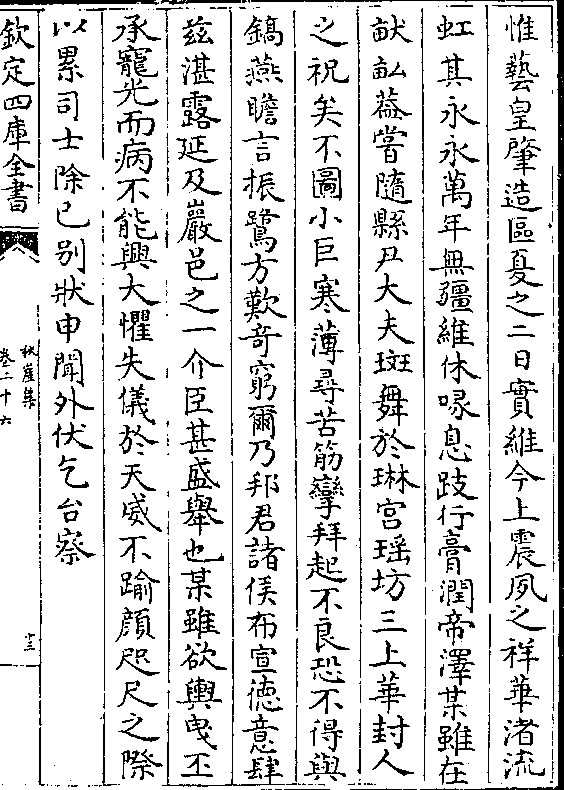 惟藝皇肇造區夏之二日實維今上震夙之祥華渚流
虹其永永萬年無疆維休喙息跂行膏潤帝澤某雖在
畎畝葢嘗隨縣尹大夫斑舞於琳宮瑶坊三上華封人
之祝矣不圖小臣寒薄尋苦筋攣拜起不良恐不得與
鎬燕瞻言振鷺方歎竒窮爾乃邦君諸侯布宣徳意肆
兹湛露延及巖邑之一介臣甚盛舉也某雖欲輿曵丕
承寵光而病不能興大懼失儀於天威不踰顔咫尺之際
以累司士除已别狀申聞外伏乞台察
欽定四庫全書
秋崖集
卷二十六
十三